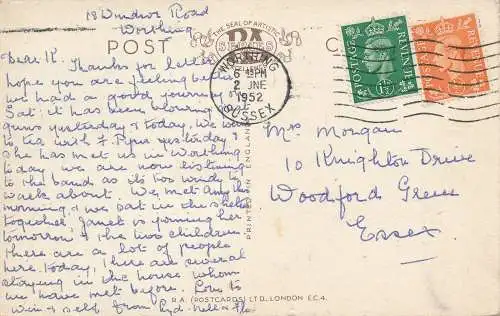 18 Windsor Road
Worthing
POST
THE SEAL OF ARTISTIC
RA
SERIES
WORTHING
6 15PM
2 JNE
1952
SUSSEX
POSTAGE
REVENUE
Dear K. Thanks for letter
hope you are feeling better
we had a good journey on
Sat. it has been blowing
guns yesterday & today. We went
to tea with yesterday &
she has met us in Worthing
today we are now listening
to the bands as its too windy to
walk about. We met
morning & we sat in the shelter
together. Janet is joining her
tomorrow & the two children
there are a lot of people
here today, there are several
staying in the house whom
we have met before. Love to
Win & self from
Mrs Morgan
10 Knighton Drive
Woodford Green
Essex
PRINTED IN ENGLAND
R.A. (POSTCARDS) LTD., LONDON E.C.4.